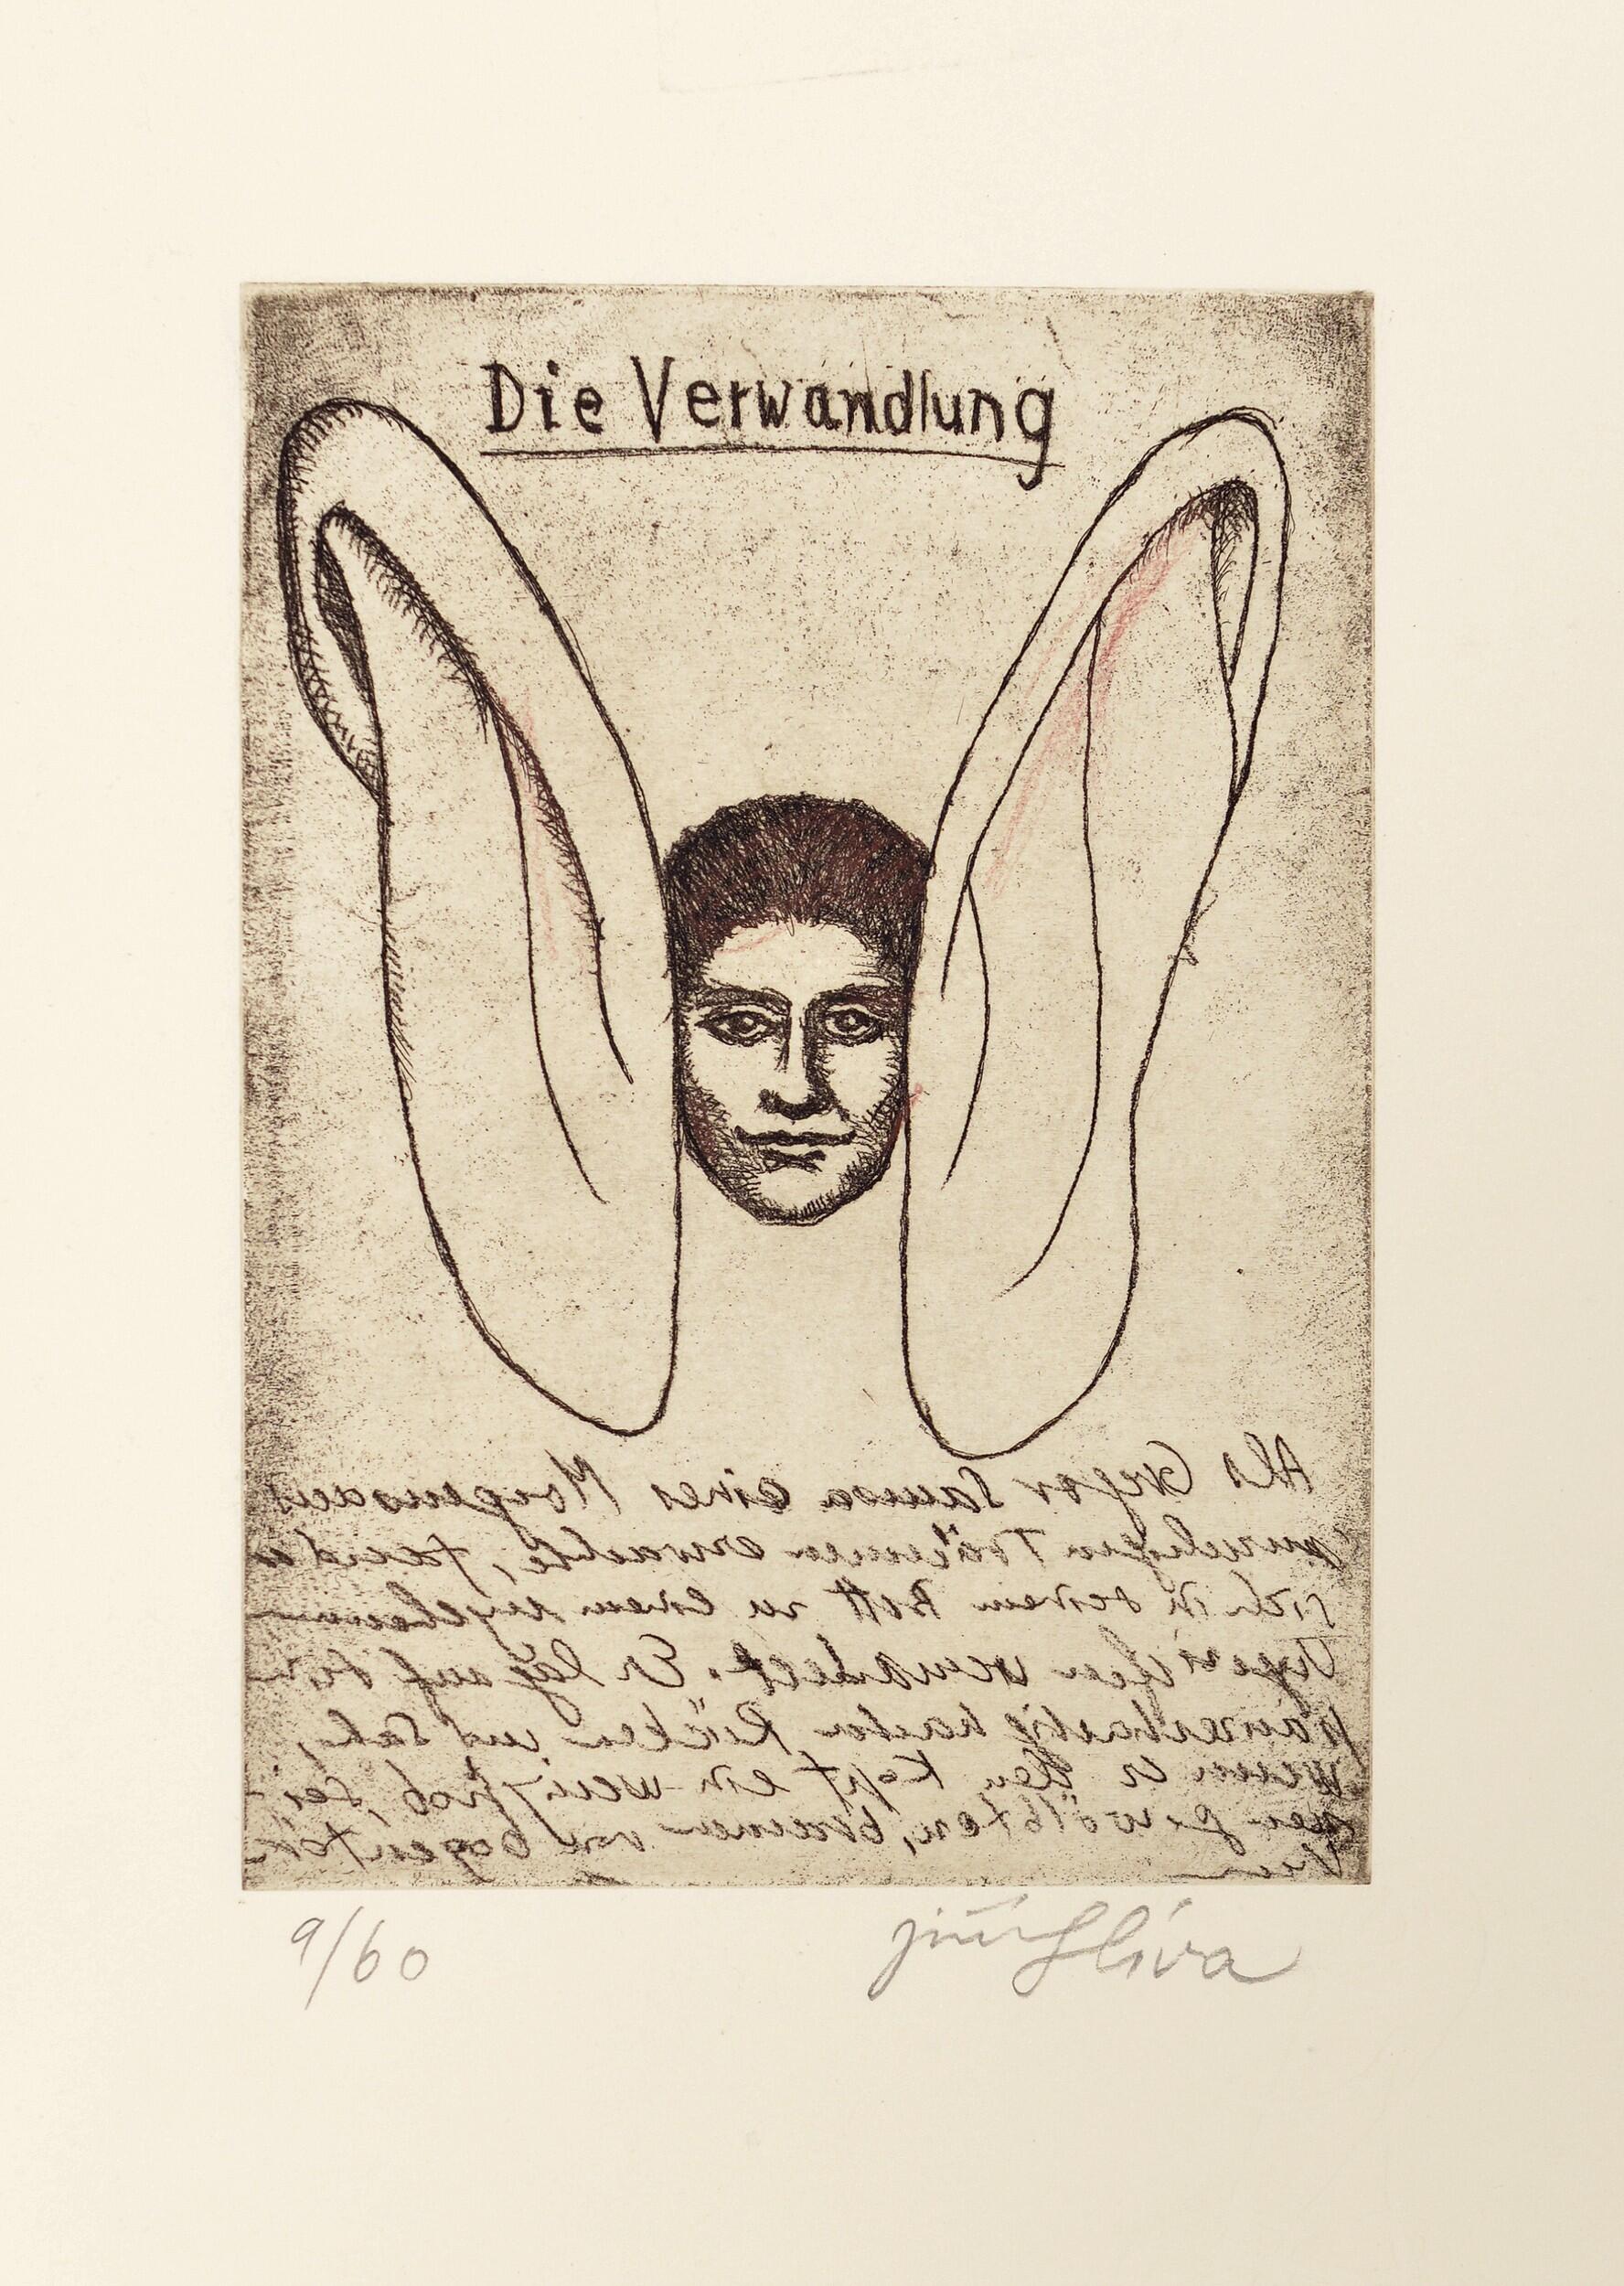 Die Verwandlung
Als Gregor Samsa eines Morgens aus
unruhigen Träumen erwachte, fand er
sich in seinem Bett zu einem ungeheuren
Ungeziefer verwandelt. Er lag auf
panzerhartig harten Rücken und sah,
wenn er den Kopf ein wenig hob, sei-
nen gewölbten, braunen von bogenför-
9/60
jiří Slíva